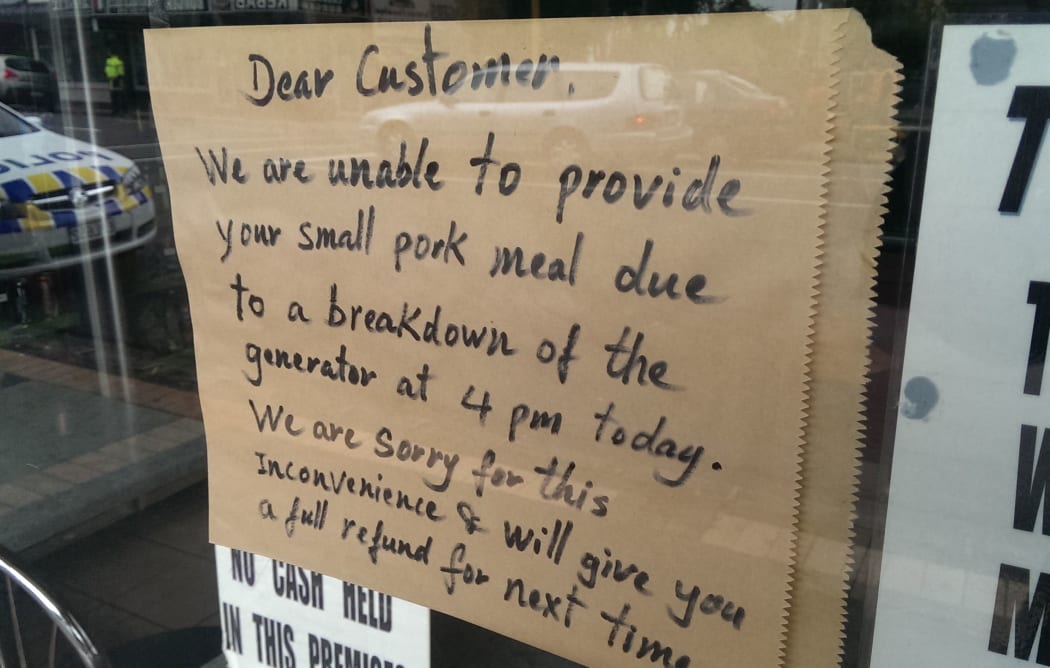 Dear Customer,
We are unable to provide
your small pork meal due
to a breakdown of the
generator at 4 pm today.
We are sorry for this
Inconvenience & will give you
a full refund for next time
NO CASH HELD
IN THIS PREMISES
POLIC
T
T
W
M